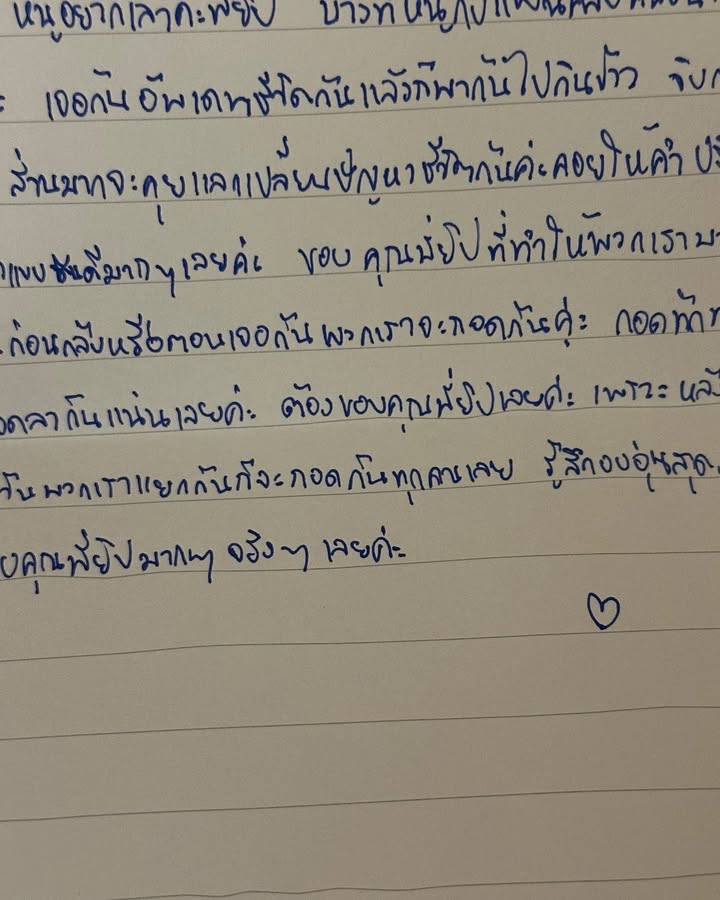 หนูอยากเล่าค่ะพี่ยิป บางที
เจอกันอัพเดทชีวิตกันแล้วก็พากันไปกินข้าว
ส่วนมากจะคุยแลกเปลี่ยนปัญหาชีวิตกันค่ะคอยให้คำ
ดีมากๆเลยค่ะ ขอบคุณพี่ยิปที่ทำให้พวกเรา
ก่อนกลับหรือตอนเจอกันพวกเราจะกอดกันค่ะ กอดทัก
ลากันแน่นเลยค่ะ ต้องขอบคุณพี่ยิปเลยค่ะ เพราะ
พวกเราแยกกันก็จะกอดกันทุกคนเลย รู้สึกอบอุ่นสุด
คุณพี่ยิปมากๆ จริงๆ เลยค่ะ